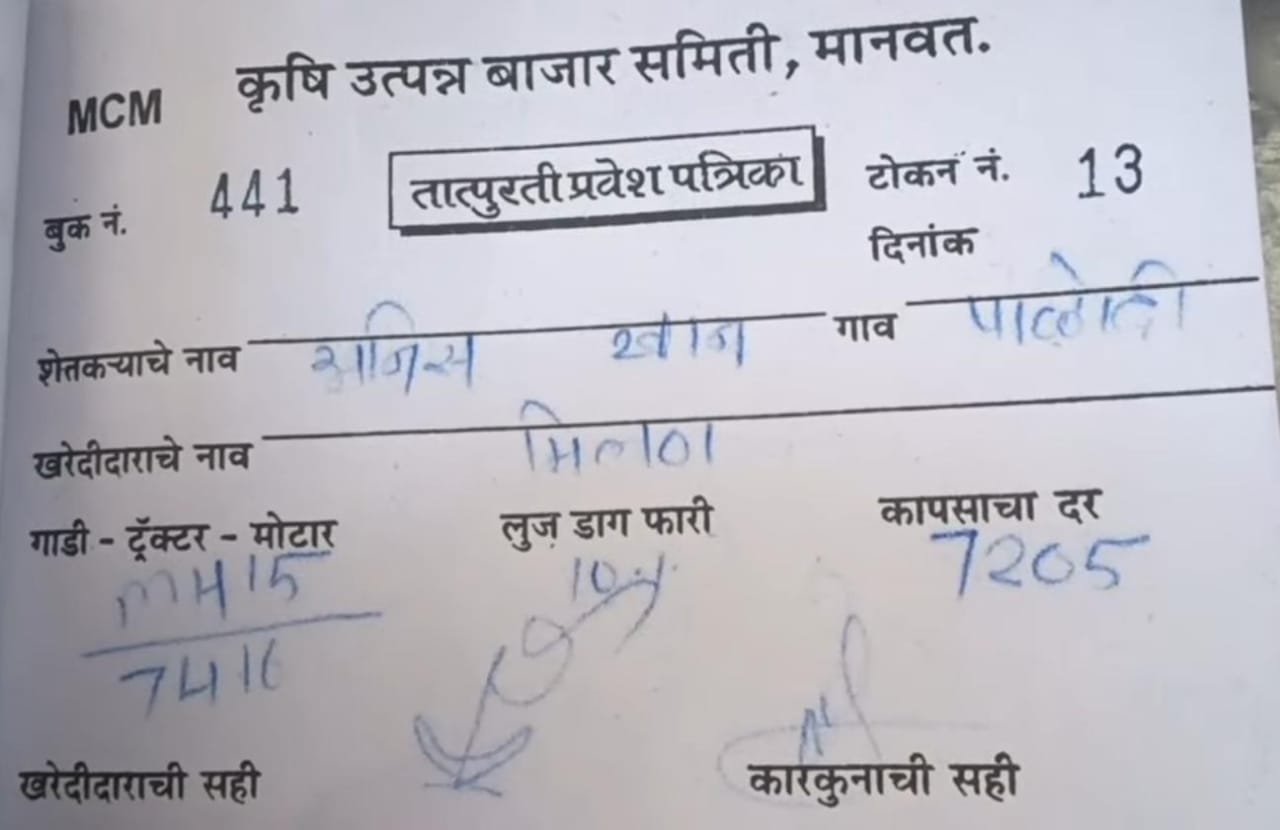 MCM कृषि उत्पन्न बाजार समिती, मानवत.
बुक नं. 441 तात्पुरती प्रवेश पत्रिका टोकन नं. 13
दिनांक
शेतकऱ्याचे नाव अनिस खान गाव
खरेदीदाराचे नाव
गाडी - ट्रॅक्टर - मोटार लुज डाग फारी कापसाचा दर
MH15 7205
7416
खरेदीदाराची सही कारकुनाची सही